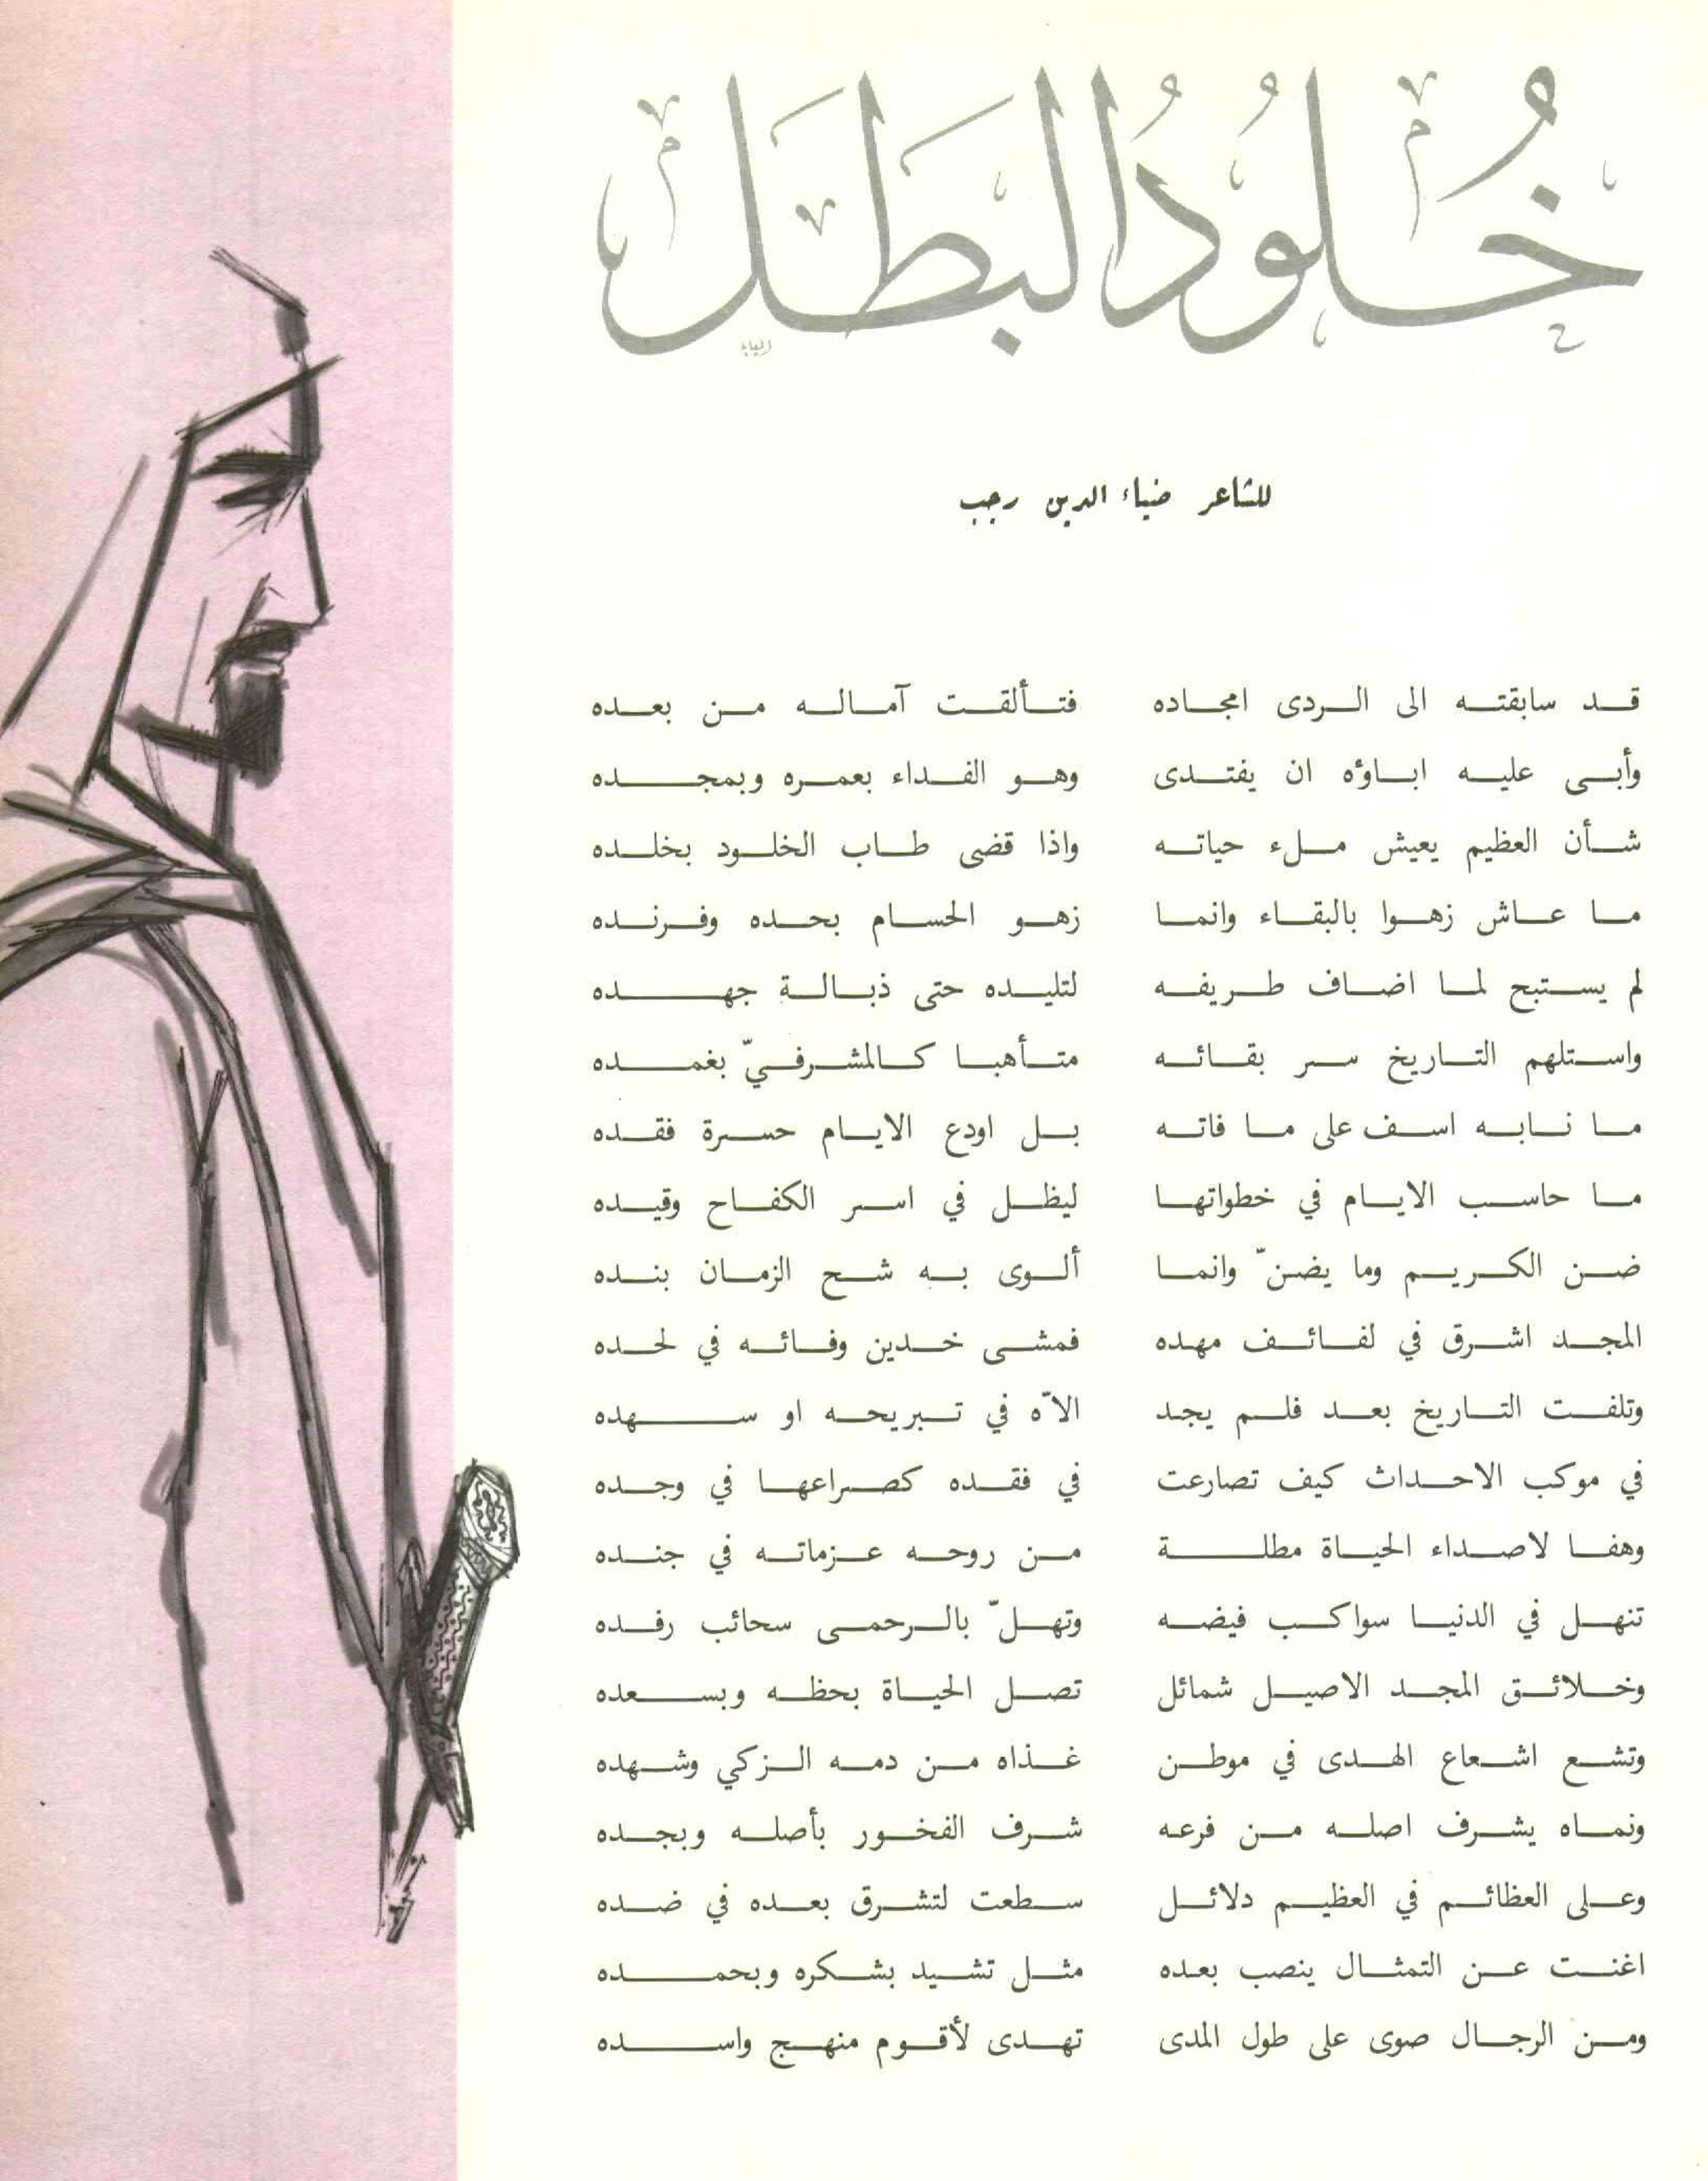 خُلُودُ البَطَل
للشاعر ضياء الدين رجب
قد سابقته الى الردى امجاده فتألقت آماله من بعده
وأبى عليه اباؤه ان يفتدى وهو الفداء بعمره وبمجده
شأن العظيم يعيش ملء حياته واذا قضى طاب الخلود بخلده
ما عاش زهوا بالبقاء وانما زهو الحسام بحده وفرنده
لم يستبح لما اضاف طريفه لتليده حتى ذبالة جهده
واستلهم التاريخ سر بقائه متأهبا كالمشرفيّ بغمده
ما نابه اسف على ما فاته بل اودع الايام حسرة فقده
ما حاسب الايام في خطواتها ليظل في اسر الكفاح وقيده
ضن الكريم وما يضنّ وانما ألوى به شح الزمان بنده
المجد اشرق في لفائف مهده فمشى خدين وفائه في لحده
وتلفت التاريخ بعد فلم يجد الاّه في تبريحه او سهده
في موكب الاحداث كيف تصارعت في فقده كصراعها في وجده
وهفا لاصداء الحياة مطلة من روحه عزماته في جنده
تنهل في الدنيا سواكب فيضه وتهلّ بالرحمى سحائب رفده
وخلائق المجد الاصيل شمائل تصل الحياة بحظه وبسعده
وتشع اشعاع الهدى في موطن غذاه من دمه الزكي وشهده
ونماه يشرف اصله من فرعه شرف الفخور بأصله وبجده
وعلى العظائم في العظيم دلائل سطعت لتشرق بعده في ضده
اغنت عن التمثال ينصب بعده مثل تشيد بشكره وبحمده
ومن الرجال صوى على طول المدى تهدى لأقوم منهج واسده